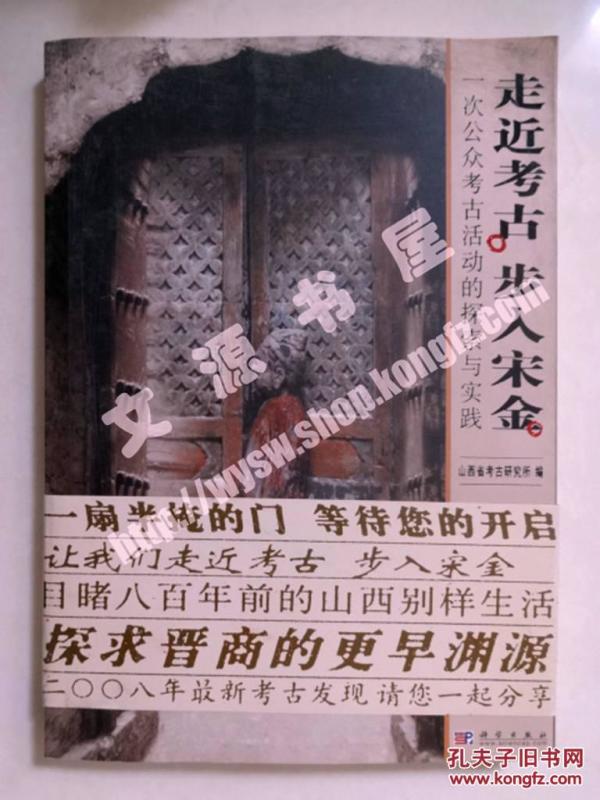 走近考古。步入宋金。
一次公众考古活动的探索与实践
山西省考古研究所 编
一扇半掩的门 等待您的开启
让我们走近考古 步入宋金
目睹八百年前的山西别样生活
探求晋商的更早渊源
二〇〇八年最新考古发现 请您一起分享
科学出版社
文源书屋
http://wysw.shop.kongfz.com
孔夫子旧书网
www.kongfz.com